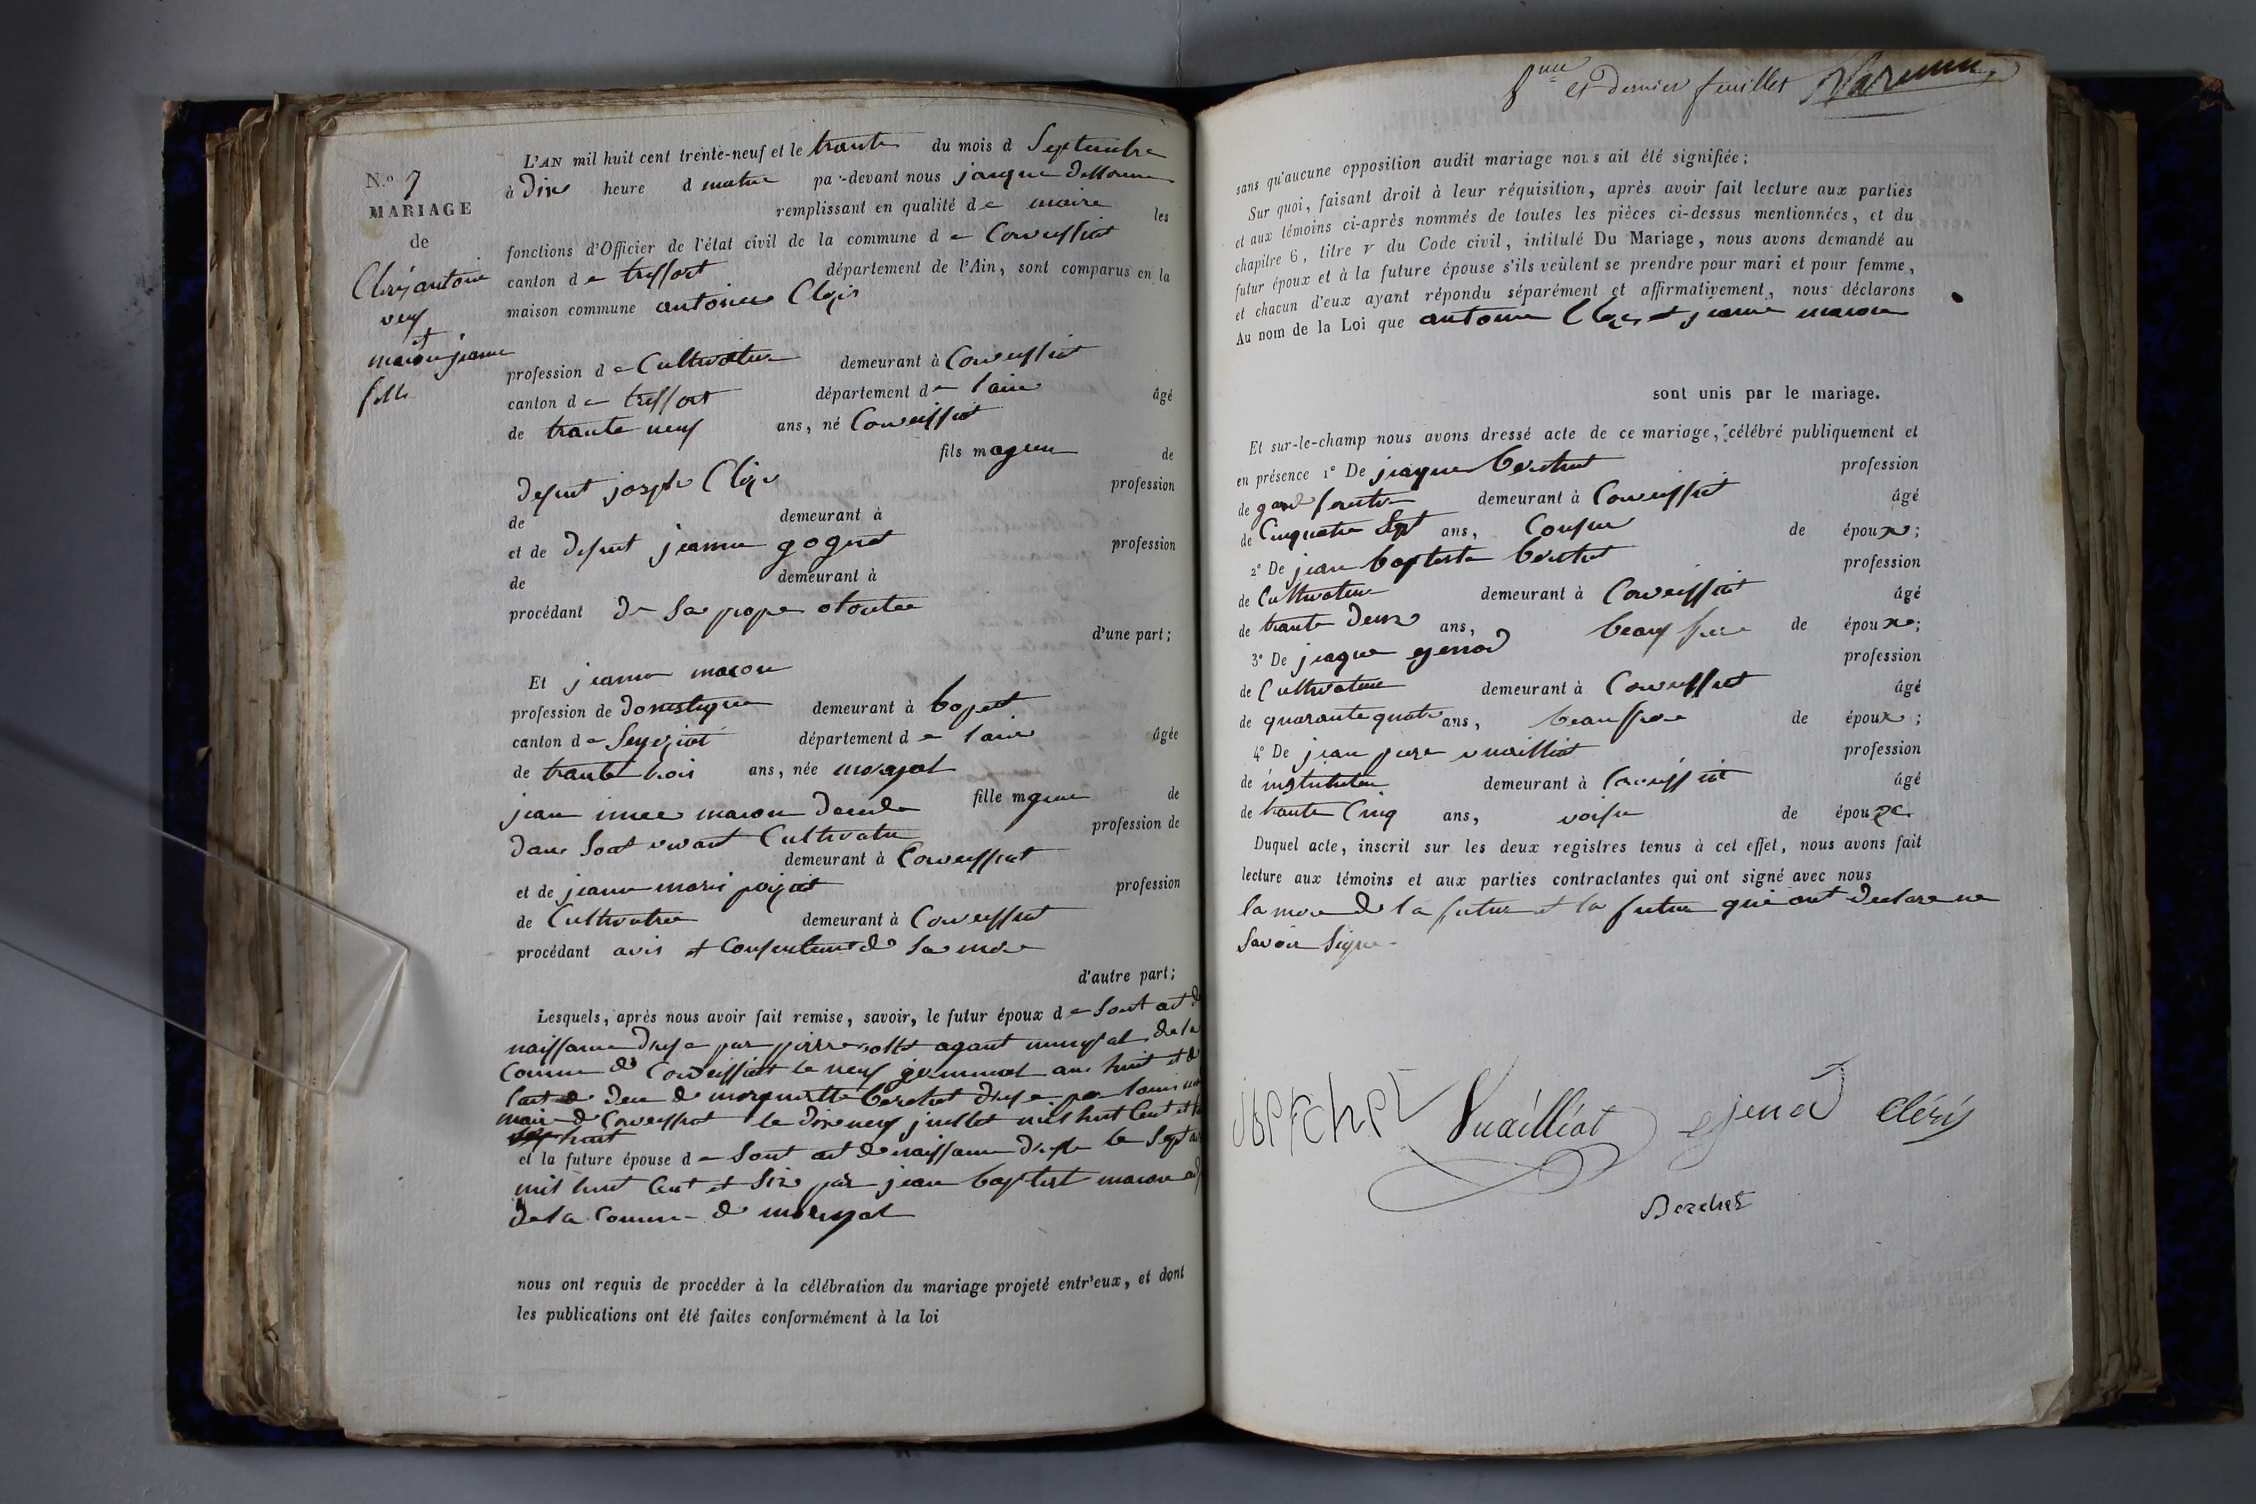 N.o 7
MARIAGE
de
Cléry antoine
veuf
et
macon jeanne
fille
L'AN mil huit cent trente-neuf et le trante du mois d Septembre
à Dix heure d matin par-devant nous jacque
remplissant en qualité de maire les
fonctions d'Officier de l'état civil de la commune de Corveissiat
canton de treffort département de l'Ain, sont comparus en la
maison commune antoine
profession de Cultivateur demeurant à Corveissiat
canton de treffort département de lain âgé
de trante neuf ans, né Corveissiat
fils mageur de
defunt joseph profession
de demeurant à
et de defunt jeanne gognet profession
de demeurant à
procédant de sa propre otoritee
d'une part;
Et jeanne macon
profession de domestique demeurant à
canton de Seyzeriat département de lain âgée
de trante trois ans, née
fille mgeure de
jean macon
dans soat vivant Cultivateur profession de
demeurant à Corveissiat
et de jeanne mari profession
de Cultivatrice demeurant à Corveissiat
procédant avis et Consentement de sa mere
d'autre part;
Lesquels, après nous avoir fait remise, savoir, le futur époux de sont act de
naissance par pierre agant de la
Comune de Corveissiat le neuf germinal ans huit et de
lact de de morguerite Berchet par louis
maire de Corveissiat le dix neuf juillet mil huit Cent et
huit
et la future épouse de sont act de naissance le Sept
mil huit Cent et Six par jean baptist macon
de la Comune de
nous ont requis de procéder à la célébration du mariage projeté entr'eux, et dont
les publications ont été faites conformément à la loi
8me et dernier feuillet
sans qu'aucune opposition audit mariage nous ait été signifiée;
Sur quoi, faisant droit à leur réquisition, après avoir fait lecture aux parties
et aux témoins ci-après nommés de toutes les pièces ci-dessus mentionnées, et du
chapitre 6, titre V du Code civil, intitulé Du Mariage, nous avons demandé au
futur époux et à la future épouse s'ils veulent se prendre pour mari et pour femme,
et chacun d'eux ayant répondu séparément et affirmativement, nous déclarons
Au nom de la Loi que antoine et jeanne macon
sont unis par le mariage.
Et sur-le-champ nous avons dressé acte de ce mariage, célébré publiquement et
en présence 1° De jacque berchet profession
de gard demeurant à Corveissiat âgé
de Cinquante Sept ans, de époux;
2° De jean baptiste berchet profession
de Cultivateur demeurant à Corveissiat âgé
de trante deux ans, beaux frere de époux;
3° De jacque ejenod profession
de Cultivateur demeurant à Corveissiat âgé
de quarante quatre ans, beaux frere de époux;
4° De jean pierre vuailliat profession
de instituteur demeurant à Corveissiat âgé
de trante Cinq ans, voisin de époux.
Duquel acte, inscrit sur les deux registres tenus à cet effet, nous avons fait
lecture aux témoins et aux parties contractantes qui ont signé avec nous
la mere de la futur et la futur qui ont declare ne
savoir signe
Vuailliat ejenod Cléry
Berchet